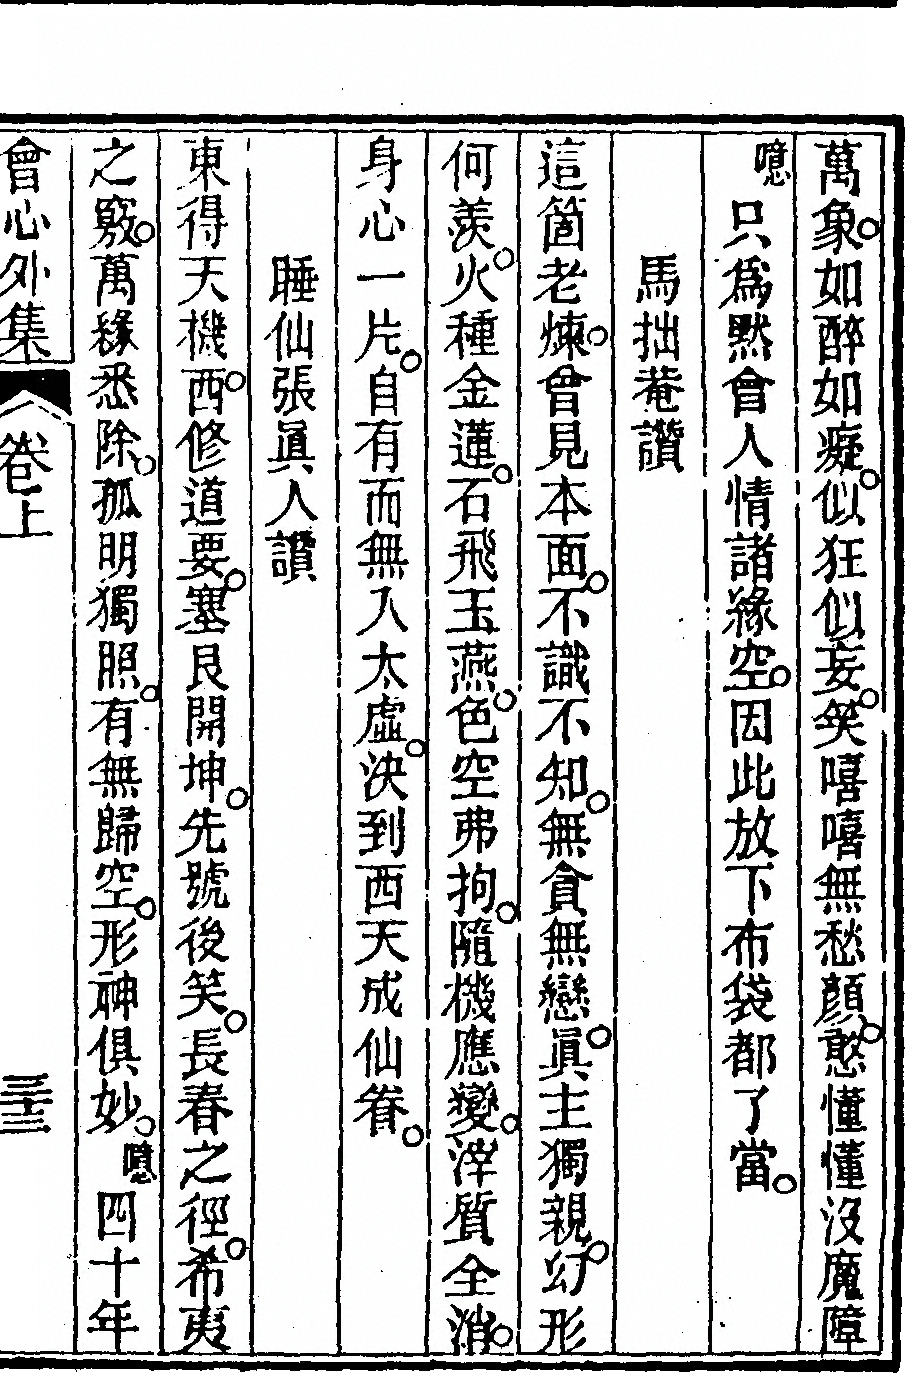 萬象。如醉如癡。似狂似妄。笑嘻嘻無愁顏。憨懂懂沒魔障
噫只爲黙會人情諸緣空。因此放下布袋都了當。
馬拙菴讚
這箇老煉。曾見本面。不識不知。無貪無戀。眞主獨親。幻形
何羨。火種金蓮。石飛玉燕。色空弗拘。隨機應變。滓質全消。
身心一片。自有而無入太虛。決到西天成仙眷。
睡仙張眞人讚
東得天機。西修道要。塞艮開坤。先號後笑。長春之徑。希夷
之竅。萬緣悉除。孤明獨照。有無歸空。形神俱妙。噫四十年
會心外集 卷上 三十三